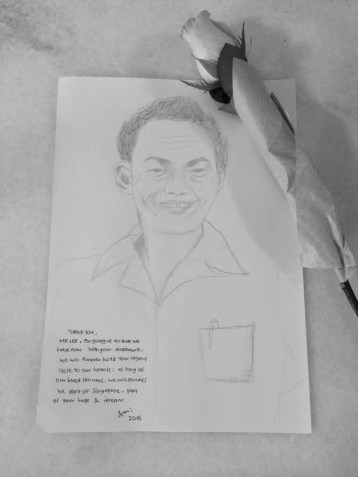 THANK YOU,
MR LEE, for giving us all we
have now. With your departure,
we will forever hold your legacy
close to our hearts; as long as
our blood remains, we will always
be part of Singapore, part
of your hope & dream
2015